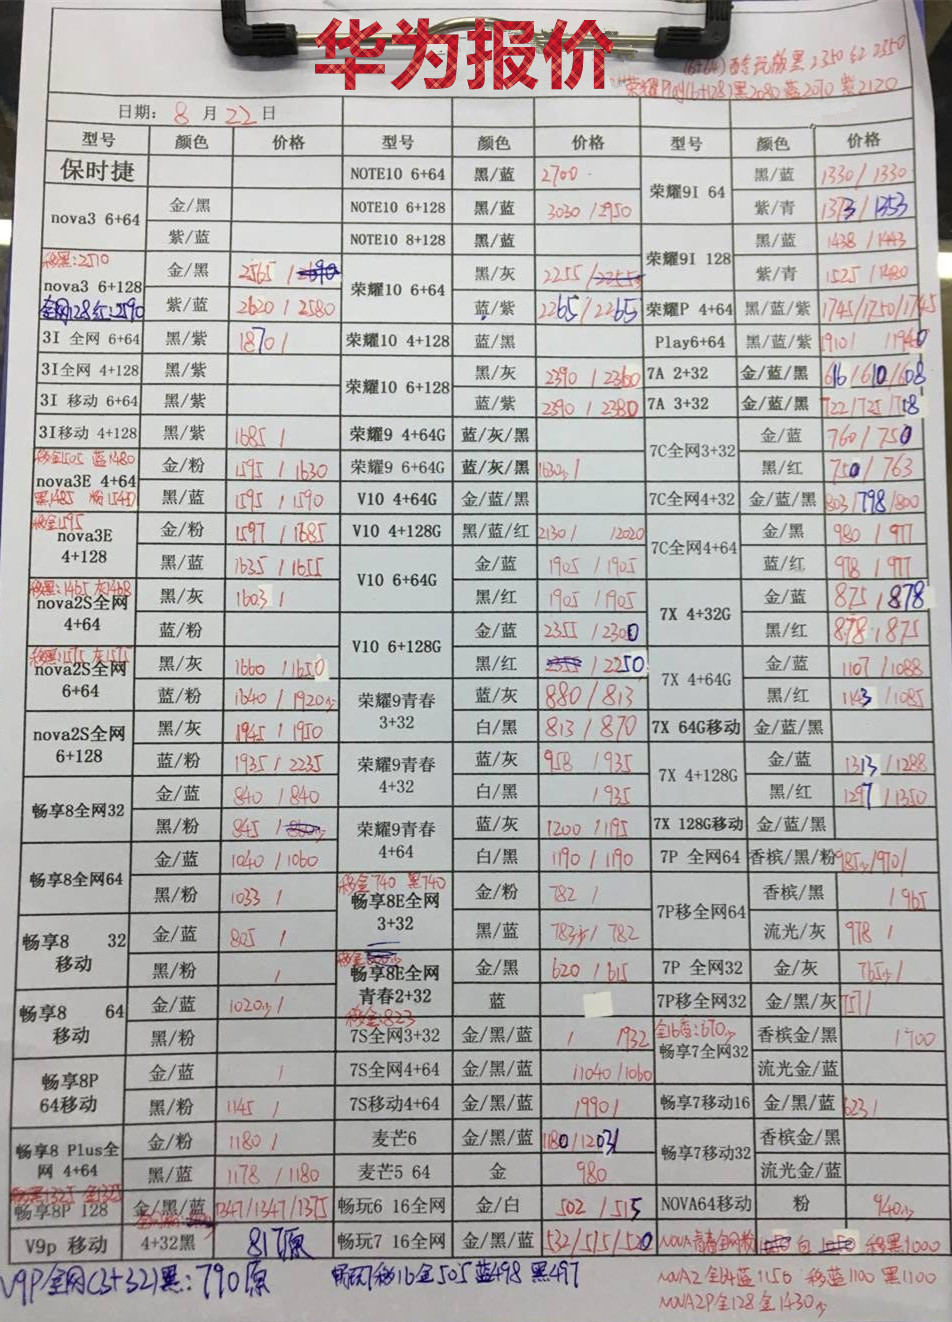 华为报价
日期: 8 月 22 日
型号 颜色 价格 型号 颜色 价格 型号 颜色 价格
保时捷
nova3 6+64 金/黑
紫/蓝
移黑:2510
nova3 6+128 金/黑 2565 /
全网128红:2590 紫/蓝 2620 / 2580
3I 全网 6+64 黑/紫 1870 /
3I全网 4+128 黑/紫
3I 移动 6+64 黑/紫
3I移动 4+128 黑/紫 1685 /
移金1505 蓝1480
nova3E 4+64 金/粉 1595 / 1630
黑/蓝 1595 / 1590
移金1595
nova3E 4+128 金/粉 1597 / 1685
黑/蓝 1635 / 1655
移黑:1465 灰1468
nova2S全网 4+64 黑/灰 1603 /
蓝/粉
移黑1575 灰1575
nova2S全网 6+64 黑/灰 1660 / 1650
蓝/粉 1640 / 1920
nova2S全网 6+128 黑/灰 1945 / 1950
蓝/粉 1935 / 2235
畅享8全网32 金/蓝 840 / 840
黑/粉 845 /
畅享8全网64 金/蓝 1040 / 1060
黑/粉 1033 /
畅享8 32 移动 金/蓝 805 /
黑/粉 /
畅享8 64 移动 金/蓝 1020 /
黑/粉
畅享8P 64移动 金/蓝 /
黑/粉 1145 /
畅享8 Plus全网 4+64 金/粉 1180 /
黑/蓝 1178 / 1180
畅享8P 128 金/黑/蓝 1347/1347/1375
V9p 移动 4+32黑 817原
V9P全网(3+32)黑:790原
NOTE10 6+64 黑/蓝 2700
NOTE10 6+128 黑/蓝 3030 / 2950
NOTE10 8+128 黑/蓝
荣耀10 6+64 黑/灰 2255 / 2255
蓝/紫 2265 / 2265
荣耀10 4+128 蓝/黑
荣耀10 6+128 黑/灰 2390 / 2360
蓝/紫 2390 / 2380
荣耀9 4+64G 蓝/灰/黑
荣耀9 6+64G 蓝/灰/黑 1630 /
V10 4+64G 金/蓝/黑
V10 4+128G 黑/蓝/红 2130 / /2020
V10 6+64G 金/蓝 1905 / 1905
黑/红 1905 / 1905
V10 6+128G 金/蓝 2355 / 2300
黑/红 2355 / 2250
荣耀9青春 3+32 蓝/灰 880 / 813
白/黑 813 / 870
荣耀9青春 4+32 蓝/灰 958 / 935
白/黑 / 935
荣耀9青春 4+64 蓝/灰 1200 / 1195
白/黑 1190 / 1190
移金740 黑740
畅享8E全网 3+32 金/粉 782 /
黑/蓝 783 / 782
畅享8E全网 青春2+32 金/黑 620 / 615
蓝
移金:823
7S全网3+32 金/黑/蓝 / /932
7S全网4+64 金/黑/蓝 /1040 / 1060
7S移动4+64 金/黑/蓝 /990 /
麦芒6 金/黑/蓝 1180/1203/
麦芒5 64 金 980
畅玩6 16全网 金/白 502 / 515
畅玩7 16全网 金/黑/蓝 532/515/520
畅玩7移16金505 蓝498 黑497
(6+64)酷玩版黑2350 红2350
荣耀Play(6+128)黑2080 蓝2070 紫2120
荣耀9I 64 黑/蓝 1330 / 1330
紫/青 1373 / 1353
荣耀9I 128 黑/蓝 1438 / 1443
紫/青 1525 / 1480
荣耀P 4+64 黑/蓝/紫 1745/1750/1745
Play6+64 黑/蓝/紫 1910/ /1940
7A 2+32 金/蓝/黑 616/610/608
7A 3+32 金/蓝/黑 722/725/718
7C全网3+32 金/蓝 760 / 750
黑/红 750 / 763
7C全网4+32 金/蓝/黑 803/798/800
7C全网4+64 金/黑 980 / 977
蓝/红 978 / 977
7X 4+32G 金/蓝 875 / 878
黑/红 878 / 875
7X 4+64G 金/蓝 1107 / 1088
黑/红 1143 / 1085
7X 64G移动 金/蓝/黑
7X 4+128G 金/蓝 1313 / 1288
黑/红 1297 / 1350
7X 128G移动 金/蓝/黑
7P 全网64 香槟/黑/粉 985/970/
7P移全网64 香槟/黑 / 965
流光/灰 978 /
7P 全网32 金/灰 765 /
7P移全网32 金/黑/灰 757/
全16香:670
畅享7全网32 香槟金/黑 /700
流光金/蓝
畅享7移动16 金/黑/蓝 623/
畅享7移动32 香槟金/黑
流光金/蓝
NOVA64移动 粉 940
NOVA青春全网粉1050 白 1050 移黑1000
NOVA2 全64蓝1150 移蓝1100 黑1100
NOVA2P全128金1430